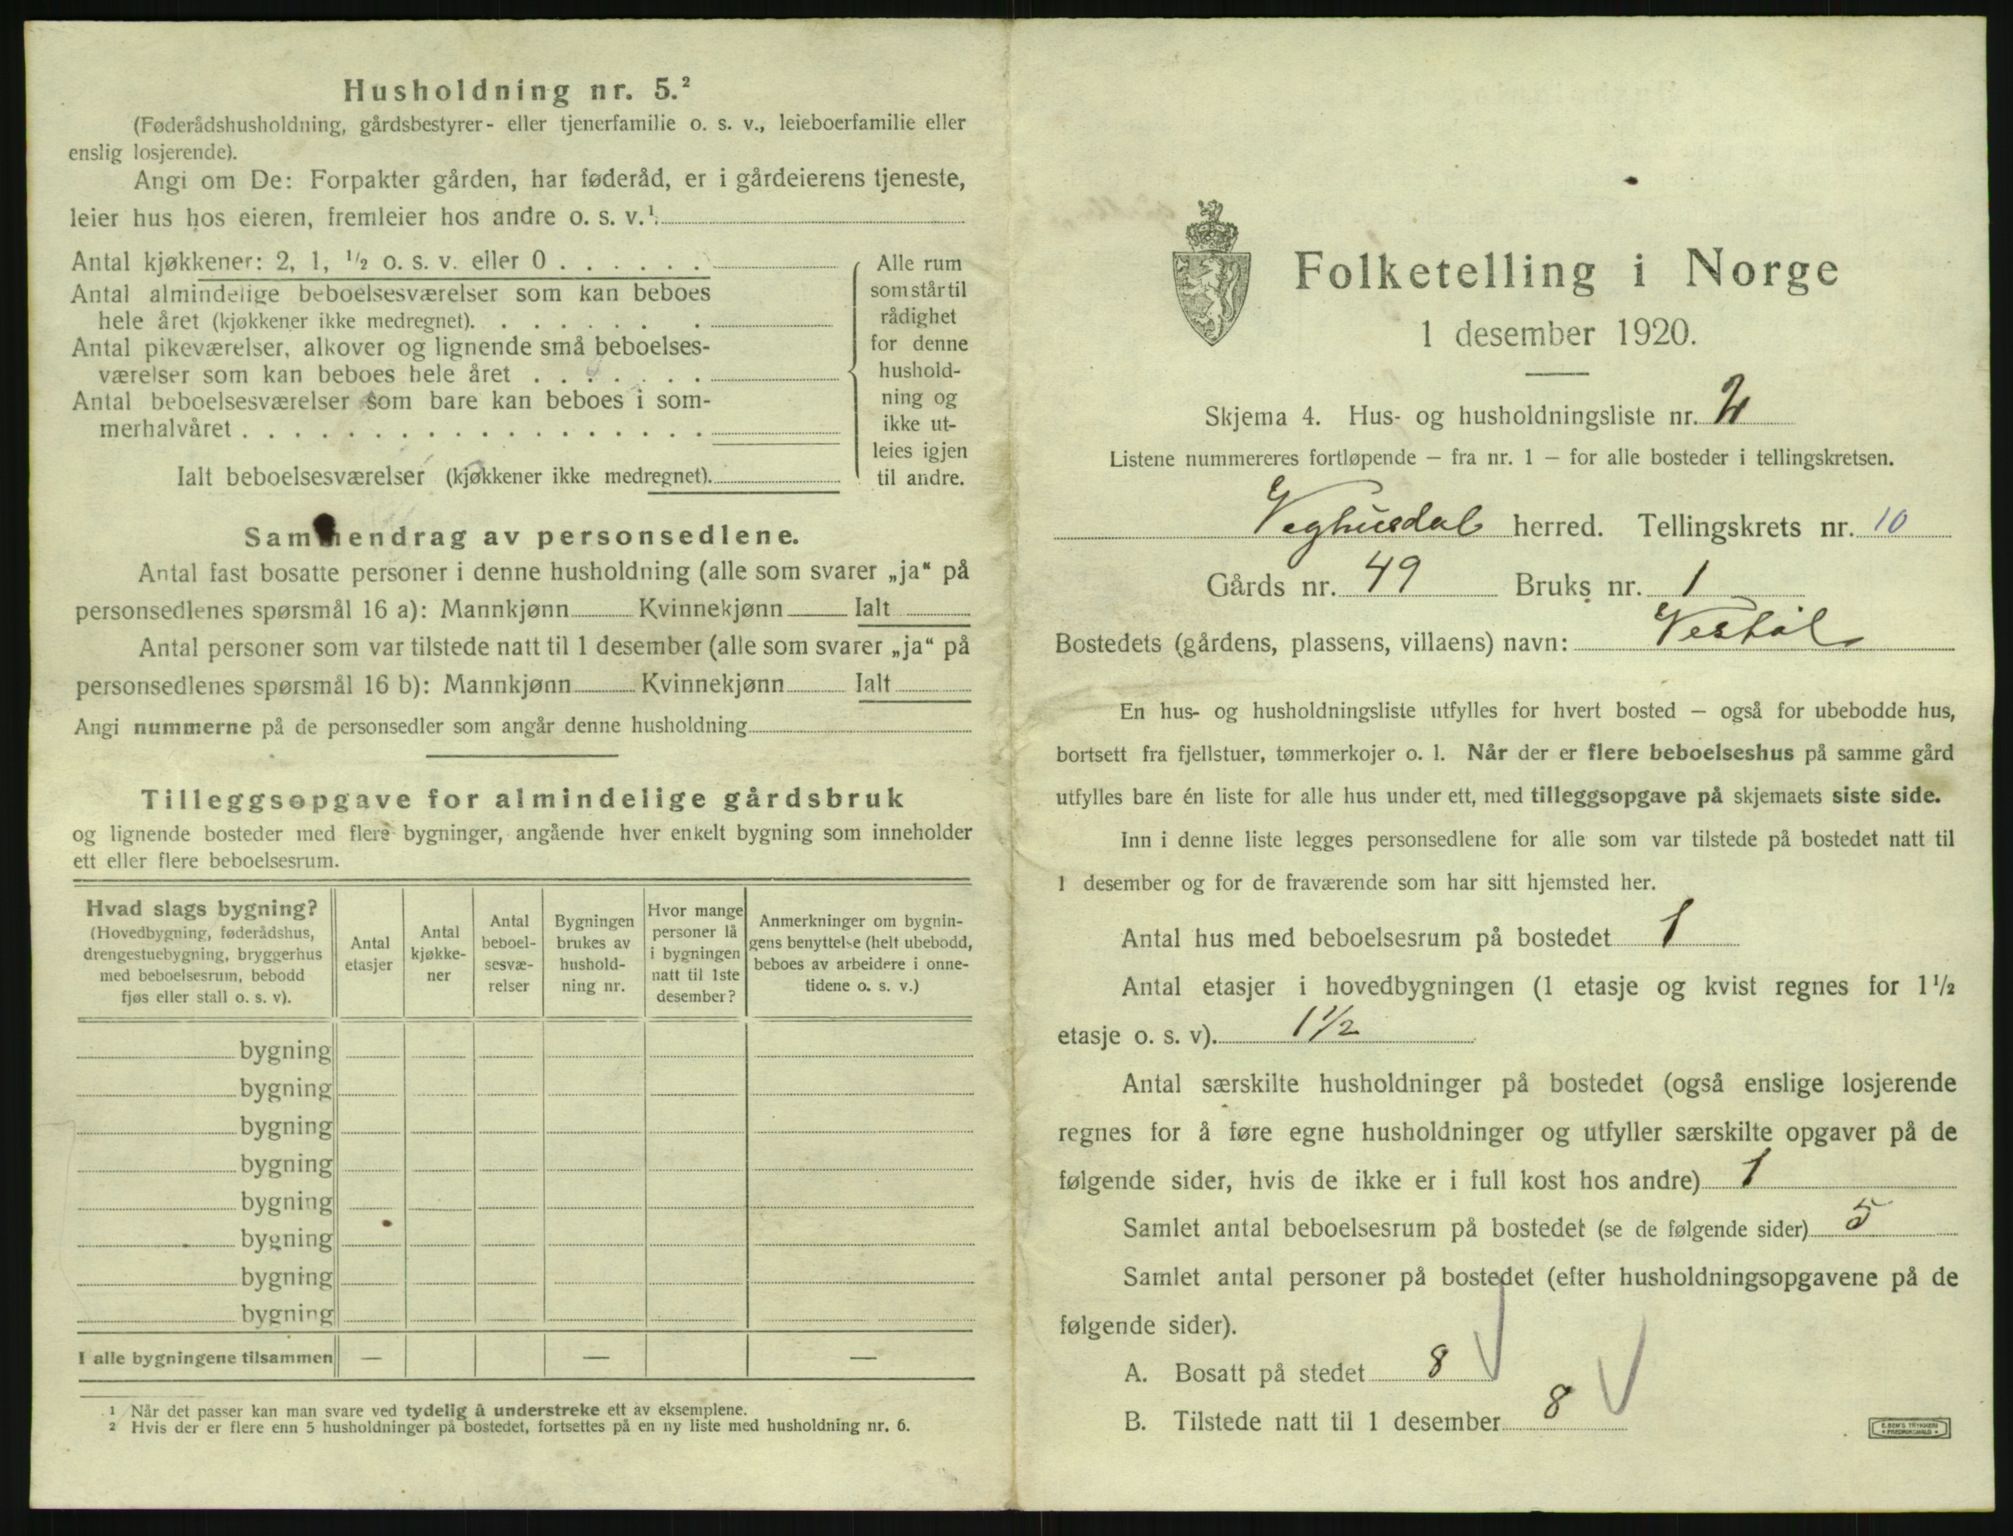 Husholdning nr. 5.²
(Føderådshusholdning, gårdsbestyrer- eller tjenerfamilie o. s. v., leieboerfamilie eller
enslig losjerende).
Angi om De: Forpakter gården, har føderåd, er i gårdeierens tjeneste,
leier hus hos eieren, fremleier hos andre o. s. v.¹
Antal kjøkkener: 2, 1, ¹/₂ o. s. v. eller 0
Antal almindelige beboelsesværelser som kan beboes
hele året (kjøkkener ikke medregnet).
Antal pikeværelser, alkover og lignende små beboelses-
værelser som kan beboes hele året
Antal beboelsesværelser som bare kan beboes i som-
merhalvåret
Ialt beboelsesværelser (kjøkkener ikke medregnet).
Alle rum
som står til
rådighet
for denne
hushold-
ning og
ikke ut-
leies igjen
til andre.
Sammendrag av personsedlene.
Antal fast bosatte personer i denne husholdning (alle som svarer „ja“ på
personsedlenes spørsmål 16 a): Mannkjønn Kvinnekjønn Ialt
Antal personer som var tilstede natt til 1 desember (alle som svarer „ja“ på
personsedlenes spørsmål 16 b): Mannkjønn Kvinnekjønn Ialt
Angi nummerne på de personsedler som angår denne husholdning
Tilleggsopgave for almindelige gårdsbruk
og lignende bosteder med flere bygninger, angående hver enkelt bygning som inneholder
ett eller flere beboelsesrum.
Hvad slags bygning?
(Hovedbygning, føderådshus,
drengestuebygning, bryggerhus
med beboelsesrum, bebodd
fjøs eller stall o. s. v).
Antal
etasjer
Antal
kjøkke-
ner
Antal
beboel-
sesvæ-
relser
Bygningen
brukes av
hushold-
ning nr.
Hvor mange
personer lå
i bygningen
natt til 1ste
desember?
Anmerkninger om bygnin-
gens benyttelse (helt ubebodd,
beboes av arbeidere i onne-
tidene o. s. v.)
bygning
bygning
bygning
bygning
bygning
bygning
bygning
bygning
I alle bygningene tilsammen — — —
¹ Når det passer kan man svare ved tydelig å understreke ett av eksemplene.
² Hvis der er flere enn 5 husholdninger på bostedet, fortsettes på en ny liste med husholdning nr. 6.
Folketelling i Norge
1 desember 1920.
Skjema 4. Hus- og husholdningsliste nr. 2
Listene nummereres fortløpende — fra nr. 1 — for alle bosteder i tellingskretsen.
Veghusdal herred. Tellingskrets nr. 10
Gårds nr. 49 Bruks nr. 1
Bostedets (gårdens, plassens, villaens) navn: Vestøl
En hus- og husholdningsliste utfylles for hvert bosted — også for ubebodde hus,
bortsett fra fjellstuer, tømmerkojer o. l. Når der er flere beboelseshus på samme gård
utfylles bare én liste for alle hus under ett, med tilleggsopgave på skjemaets siste side.
Inn i denne liste legges personsedlene for alle som var tilstede på bostedet natt til
1 desember og for de fraværende som har sitt hjemsted her.
Antal hus med beboelsesrum på bostedet 1
Antal etasjer i hovedbygningen (1 etasje og kvist regnes for 1¹/₂
etasje o. s. v). 1 1/2
Antal særskilte husholdninger på bostedet (også enslige losjerende
regnes for å føre egne husholdninger og utfyller særskilte opgaver på de
følgende sider, hvis de ikke er i full kost hos andre) 1
Samlet antal beboelsesrum på bostedet (se de følgende sider) 5
Samlet antal personer på bostedet (efter husholdningsopgavene på de
følgende sider).
A. Bosatt på stedet 8
B. Tilstede natt til 1 desember 8